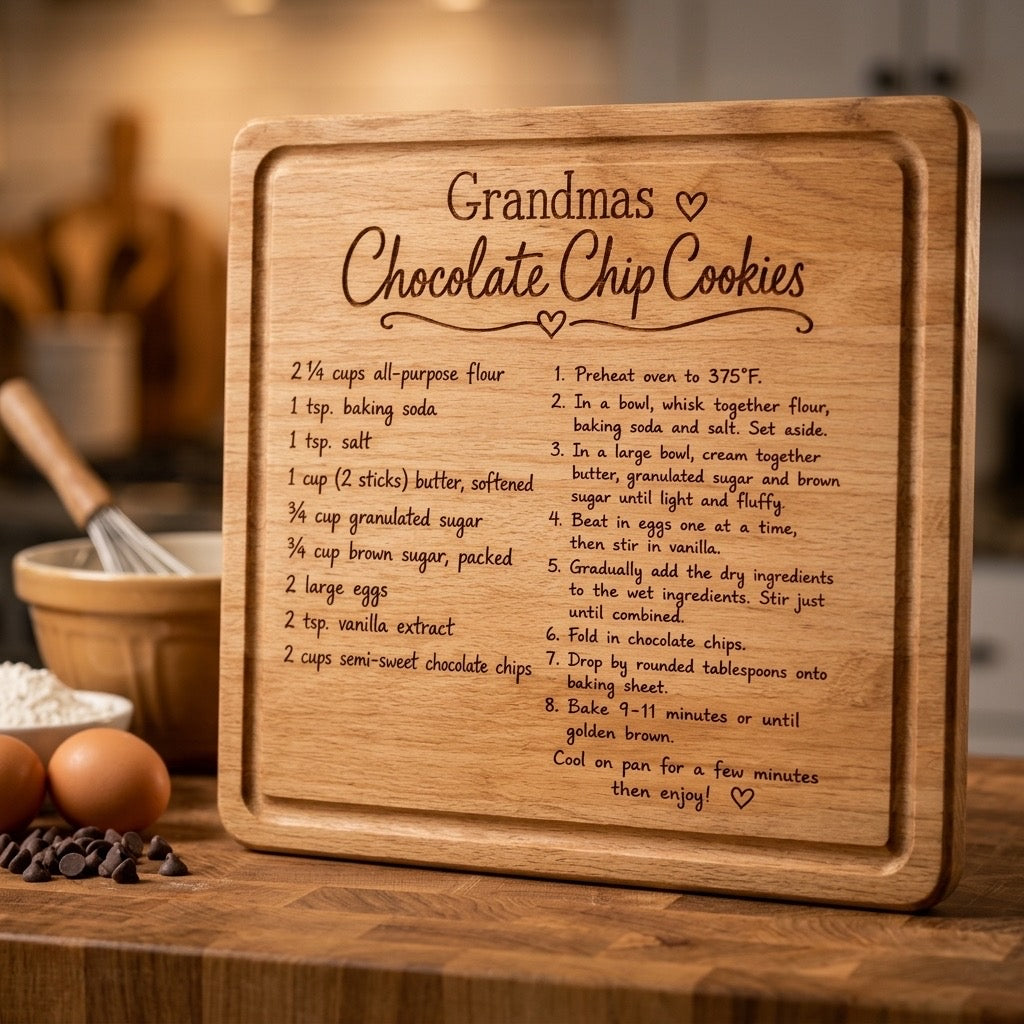 Grandmas ♡
Chocolate Chip Cookies
2 ¼ cups all-purpose flour
1 tsp. baking soda
1 tsp. salt
1 cup (2 sticks) butter, softened
¾ cup granulated sugar
¾ cup brown sugar, packed
2 large eggs
2 tsp. vanilla extract
2 cups semi-sweet chocolate chips
1. Preheat oven to 375°F.
2. In a bowl, whisk together flour,
baking soda and salt. Set aside.
3. In a large bowl, cream together
butter, granulated sugar and brown
sugar until light and fluffy.
4. Beat in eggs one at a time,
then stir in vanilla.
5. Gradually add the dry ingredients
to the wet ingredients. Stir just
until combined.
6. Fold in chocolate chips.
7. Drop by rounded tablespoons onto
baking sheet.
8. Bake 9-11 minutes or until
golden brown.
Cool on pan for a few minutes
then enjoy! ♡